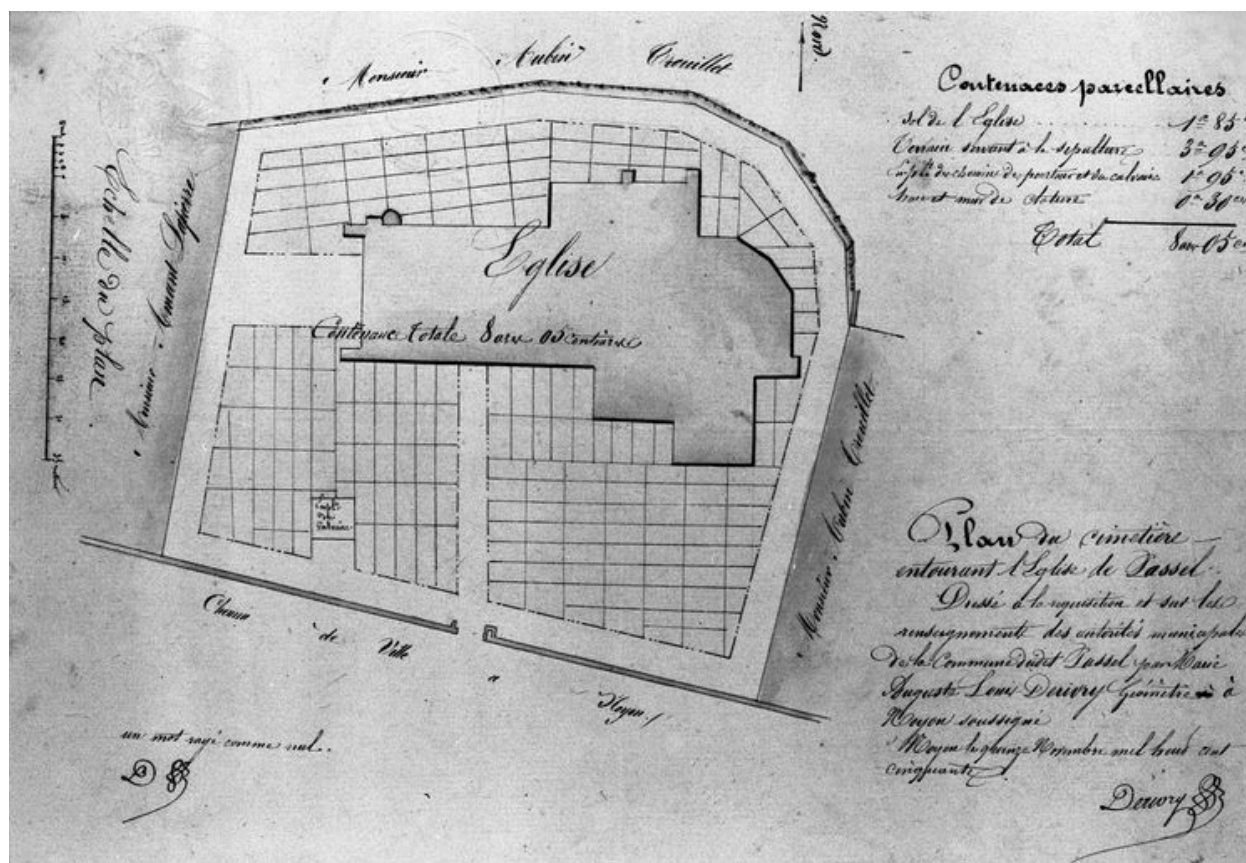 Nord.
Monsieur Aubin Trouillet
Contenances parcellaires
sol de l'Eglise 1a 85
Terrain servant à la sépulture 3a 95
empl. du chemin de pourtour et du calvaire 1a 95
et mur de clôture 0a 30
Total 8 ares 05
Echelle du plan
Monsieur Amant
Eglise
Contenance totale 8 ares 05 centiares
Empl.
du
Calvaire
Monsieur Aubin Trouillet
Chemin de Ville à Noyon
Plan du cimetière
entourant l'Eglise de Passel.
Dressé à la réquisition et sur les
renseignements des autorités municipales
de la Commune dudit Passel par Marie
Auguste Louis Derivry géomètre à
Noyon soussigné
Noyon le quinze Novembre mil huit cent
cinquante
Derivry
un mot rayé comme nul.
D